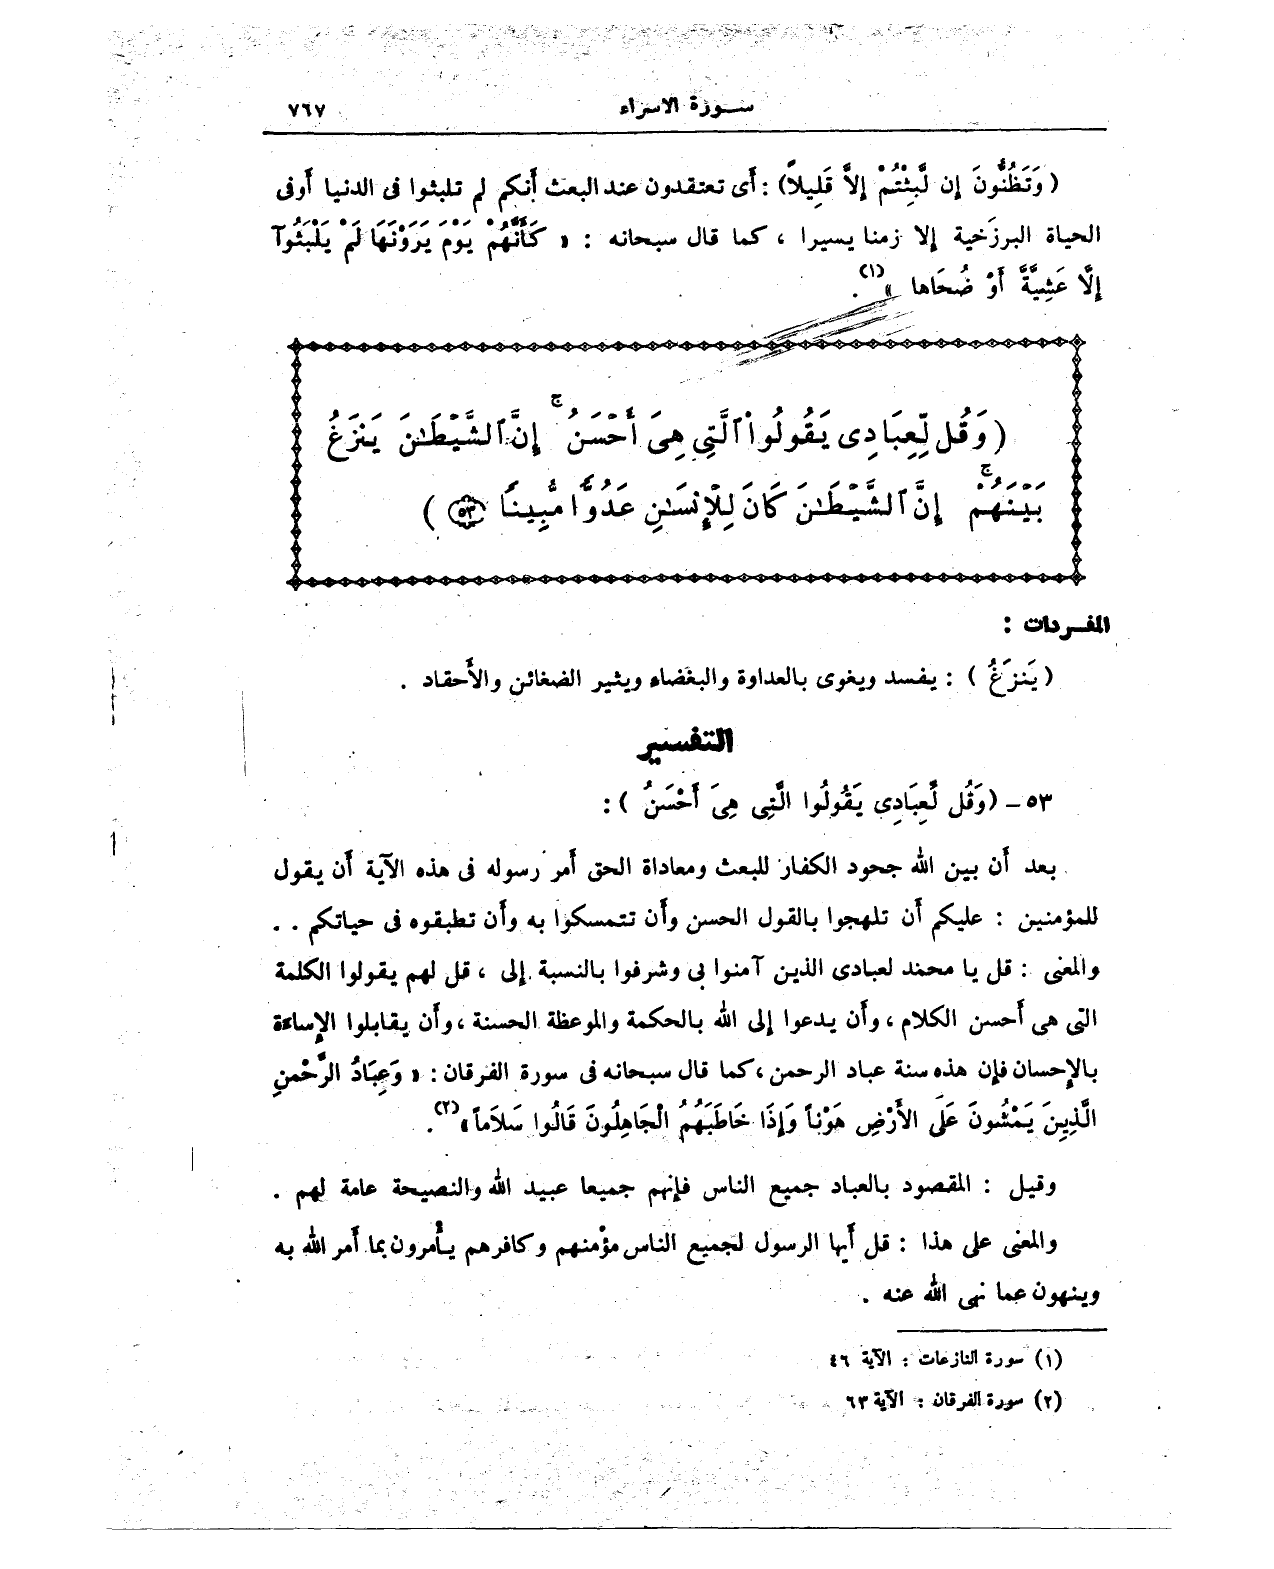 سورة الاسراء ٧٦٧
(وَتَظُنُّونَ إِن لَّبِثْتُمْ إِلاَّ قَلِيلاً) : أى تعتقدون عند البعث أنكم لم تلبثوا فى الدنيا أوفى
الحياة البرزخية إلا زمنا يسيرا ، كما قال سبحانه : « كَأَنَّهُمْ يَوْمَ يَرَوْنَهَا لَمْ يَلْبَثُوآ
إِلَّا عَشِيَّةً أَوْ ضُحَاها »(١).
(وَقُل لِّعِبَادِى يَقُولُوا۟ ٱلَّتِى هِىَ أَحْسَنُ ۚ إِنَّ ٱلشَّيْطَـٰنَ يَنزَغُ
بَيْنَهُمْ ۚ إِنَّ ٱلشَّيْطَـٰنَ كَانَ لِلْإِنسَـٰنِ عَدُوًّا مُّبِينًا ٥٣ )
المفـردات :
(يَنزَغُ ) : يفسد ويغوى بالعداوة والبغضاء ويثير الضغائن والأحقاد .
التفسير
٥٣ – (وَقُل لِّعِبَادِى يَقُولُوا الَّتِى هِىَ أَحْسَنُ ) :
بعد أن بين الله جحود الكفار للبعث ومعاداة الحق أمر رسوله فى هذه الآية أن يقول
للمؤمنين : عليكم أن تلهجوا بالقول الحسن وأن تتمسكوا به وأن تطبقوه فى حياتكم . .
والمعنى : قل يا محمد لعبادى الذين آمنوا بى وشرفوا بالنسبة إلى ، قل لهم يقولوا الكلمة
التى هى أحسن الكلام ، وأن يدعوا إلى الله بالحكمة والموعظة الحسنة ، وأن يقابلوا الإساءة
بالإحسان فإن هذه سنة عباد الرحمن ، كما قال سبحانه فى سورة الفرقان : « وَعِبَادُ الرَّحْمنِ
الَّذِينَ يَمْشُونَ عَلَى الأَرْضِ هَوْناً وَإِذَا خَاطَبَهُمُ الْجَاهِلُونَ قَالُوا سَلاَماً»(٢).
وقيل : المقصود بالعباد جميع الناس فإنهم جميعا عبيد الله والنصيحة عامة لهم .
والمعنى على هذا : قل أيها الرسول لجميع الناس مؤمنهم وكافرهم يأمرون بما أمر الله به
وينهون عما نهى الله عنه .
(١) سورة النازعات : الآية ٤٦
(٢) سورة الفرقان : الآية ٦٣